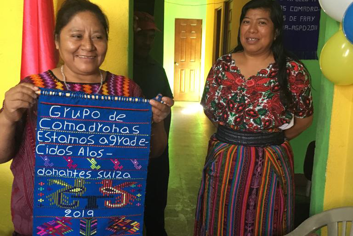 Grupo de
Comadrohas
Estamos agrade-
Cidos Alos-
dohantes suiza
2019
COMADRO